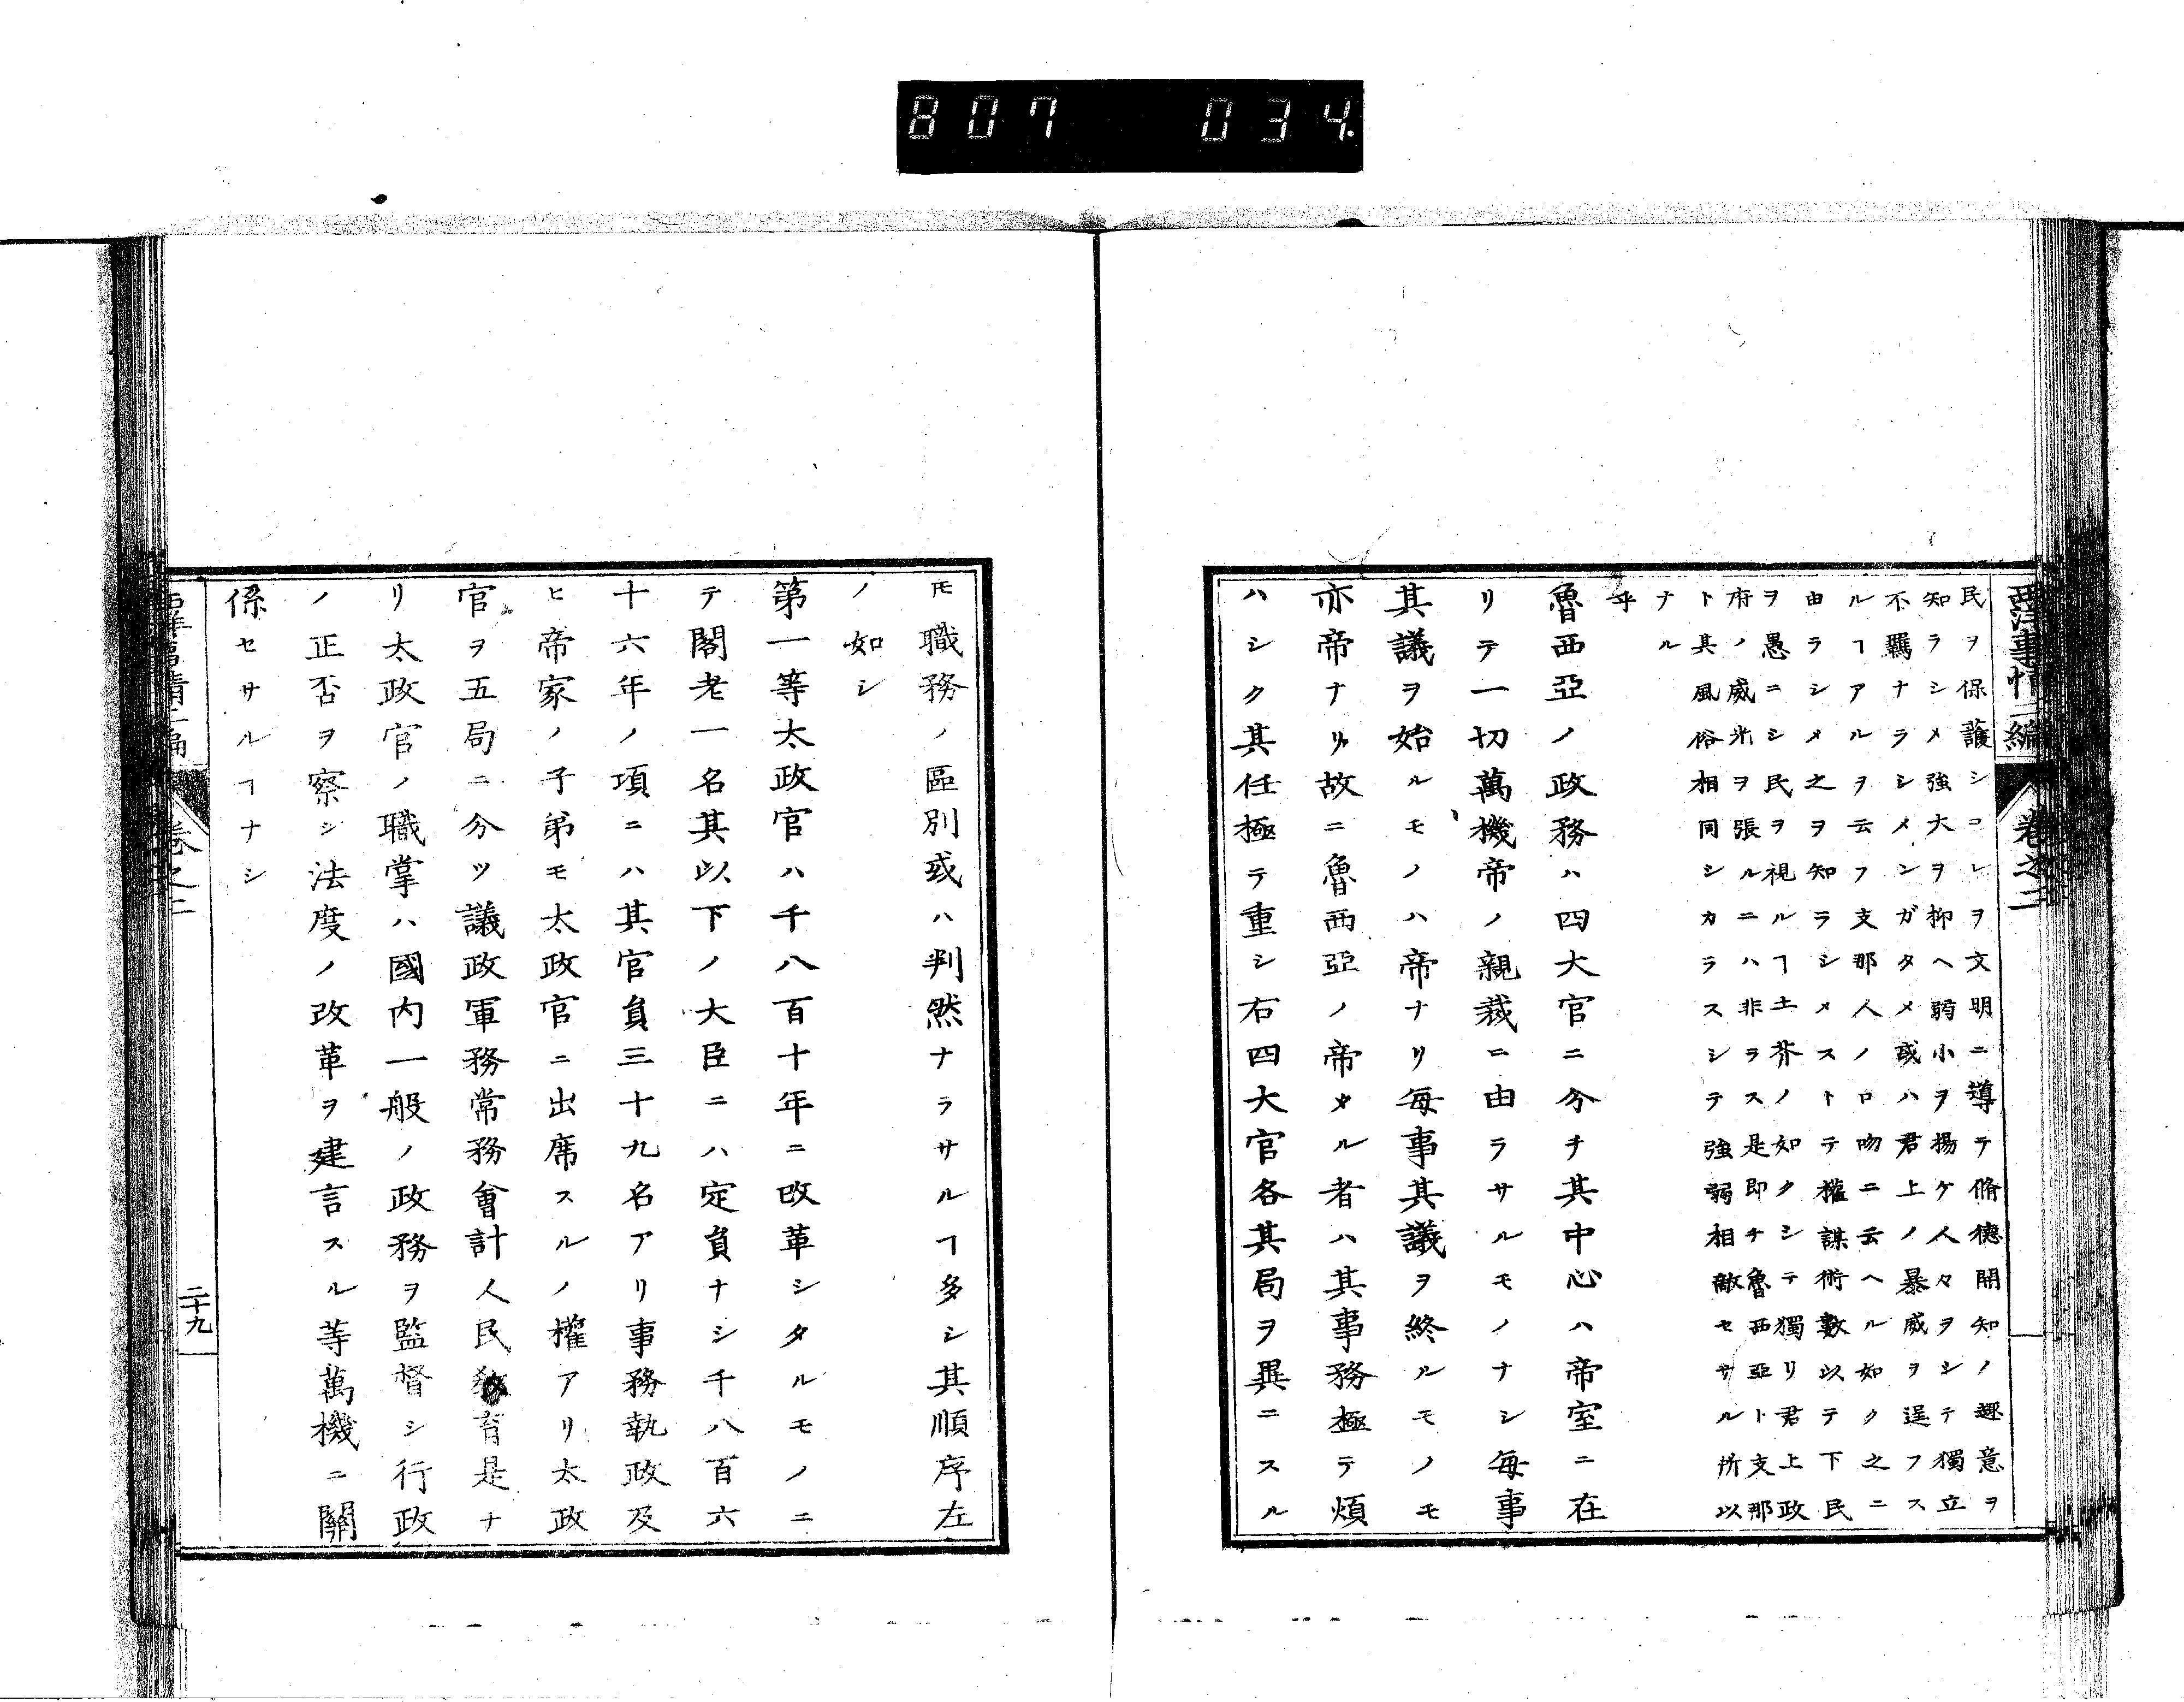 807 034.
西洋事情二編 卷之二
民ヲ保護シコレヲ文明ニ導テ脩德開知ノ趣意ヲ
知ラシメ強大ヲ抑ヘ弱小ヲ揚ケ人々ヲシテ獨立
不羈ナラシメンガタメ或ハ君上ノ暴威ヲ逞フス
ルヿアルヲ云フ支那人ノ口吻ニ云ヘル如ク之ニ
由ラシメ之ヲ知ラシメストテ權謀術數以テ下民
ヲ愚ニシ民ヲ視ルヿ土芥ノ如クシテ獨リ君上政
府ノ威光ヲ張ルニハ非ラス是即チ魯西亞ト支那
ト其風俗相同シカラスシテ強弱相敵セサル所以
ナル
乎
魯西亞ノ政務ハ四大官ニ分チ其中心ハ帝室ニ在
リテ一切萬機帝ノ親裁ニ由ラサルモノナシ毎事
其議ヲ始ルモノハ帝ナリ毎事其議ヲ終ルモノモ
亦帝ナリ故ニ魯西亞ノ帝タル者ハ其事務極テ煩
ハシク其任極テ重シ右四大官各其局ヲ異ニスル
𪜈職務ノ區別或ハ判然ナラサルヿ多シ其順序左
ノ如シ
第一等太政官ハ千八百十年ニ改革シタルモノニ
テ閣老一名其以下ノ大臣ニハ定員ナシ千八百六
十六年ノ項ニハ其官員三十九名アリ事務執政及
ヒ帝家ノ子弟モ太政官ニ出席スルノ權アリ太政
官ヲ五局ニ分ツ議政軍務常務會計人民教育是ナ
リ太政官ノ職掌ハ國内一般ノ政務ヲ監督シ行政
ノ正否ヲ察シ法度ノ改革ヲ建言スル等萬機ニ關
係セサルヿナシ
西洋事情二編 卷之二 二十九